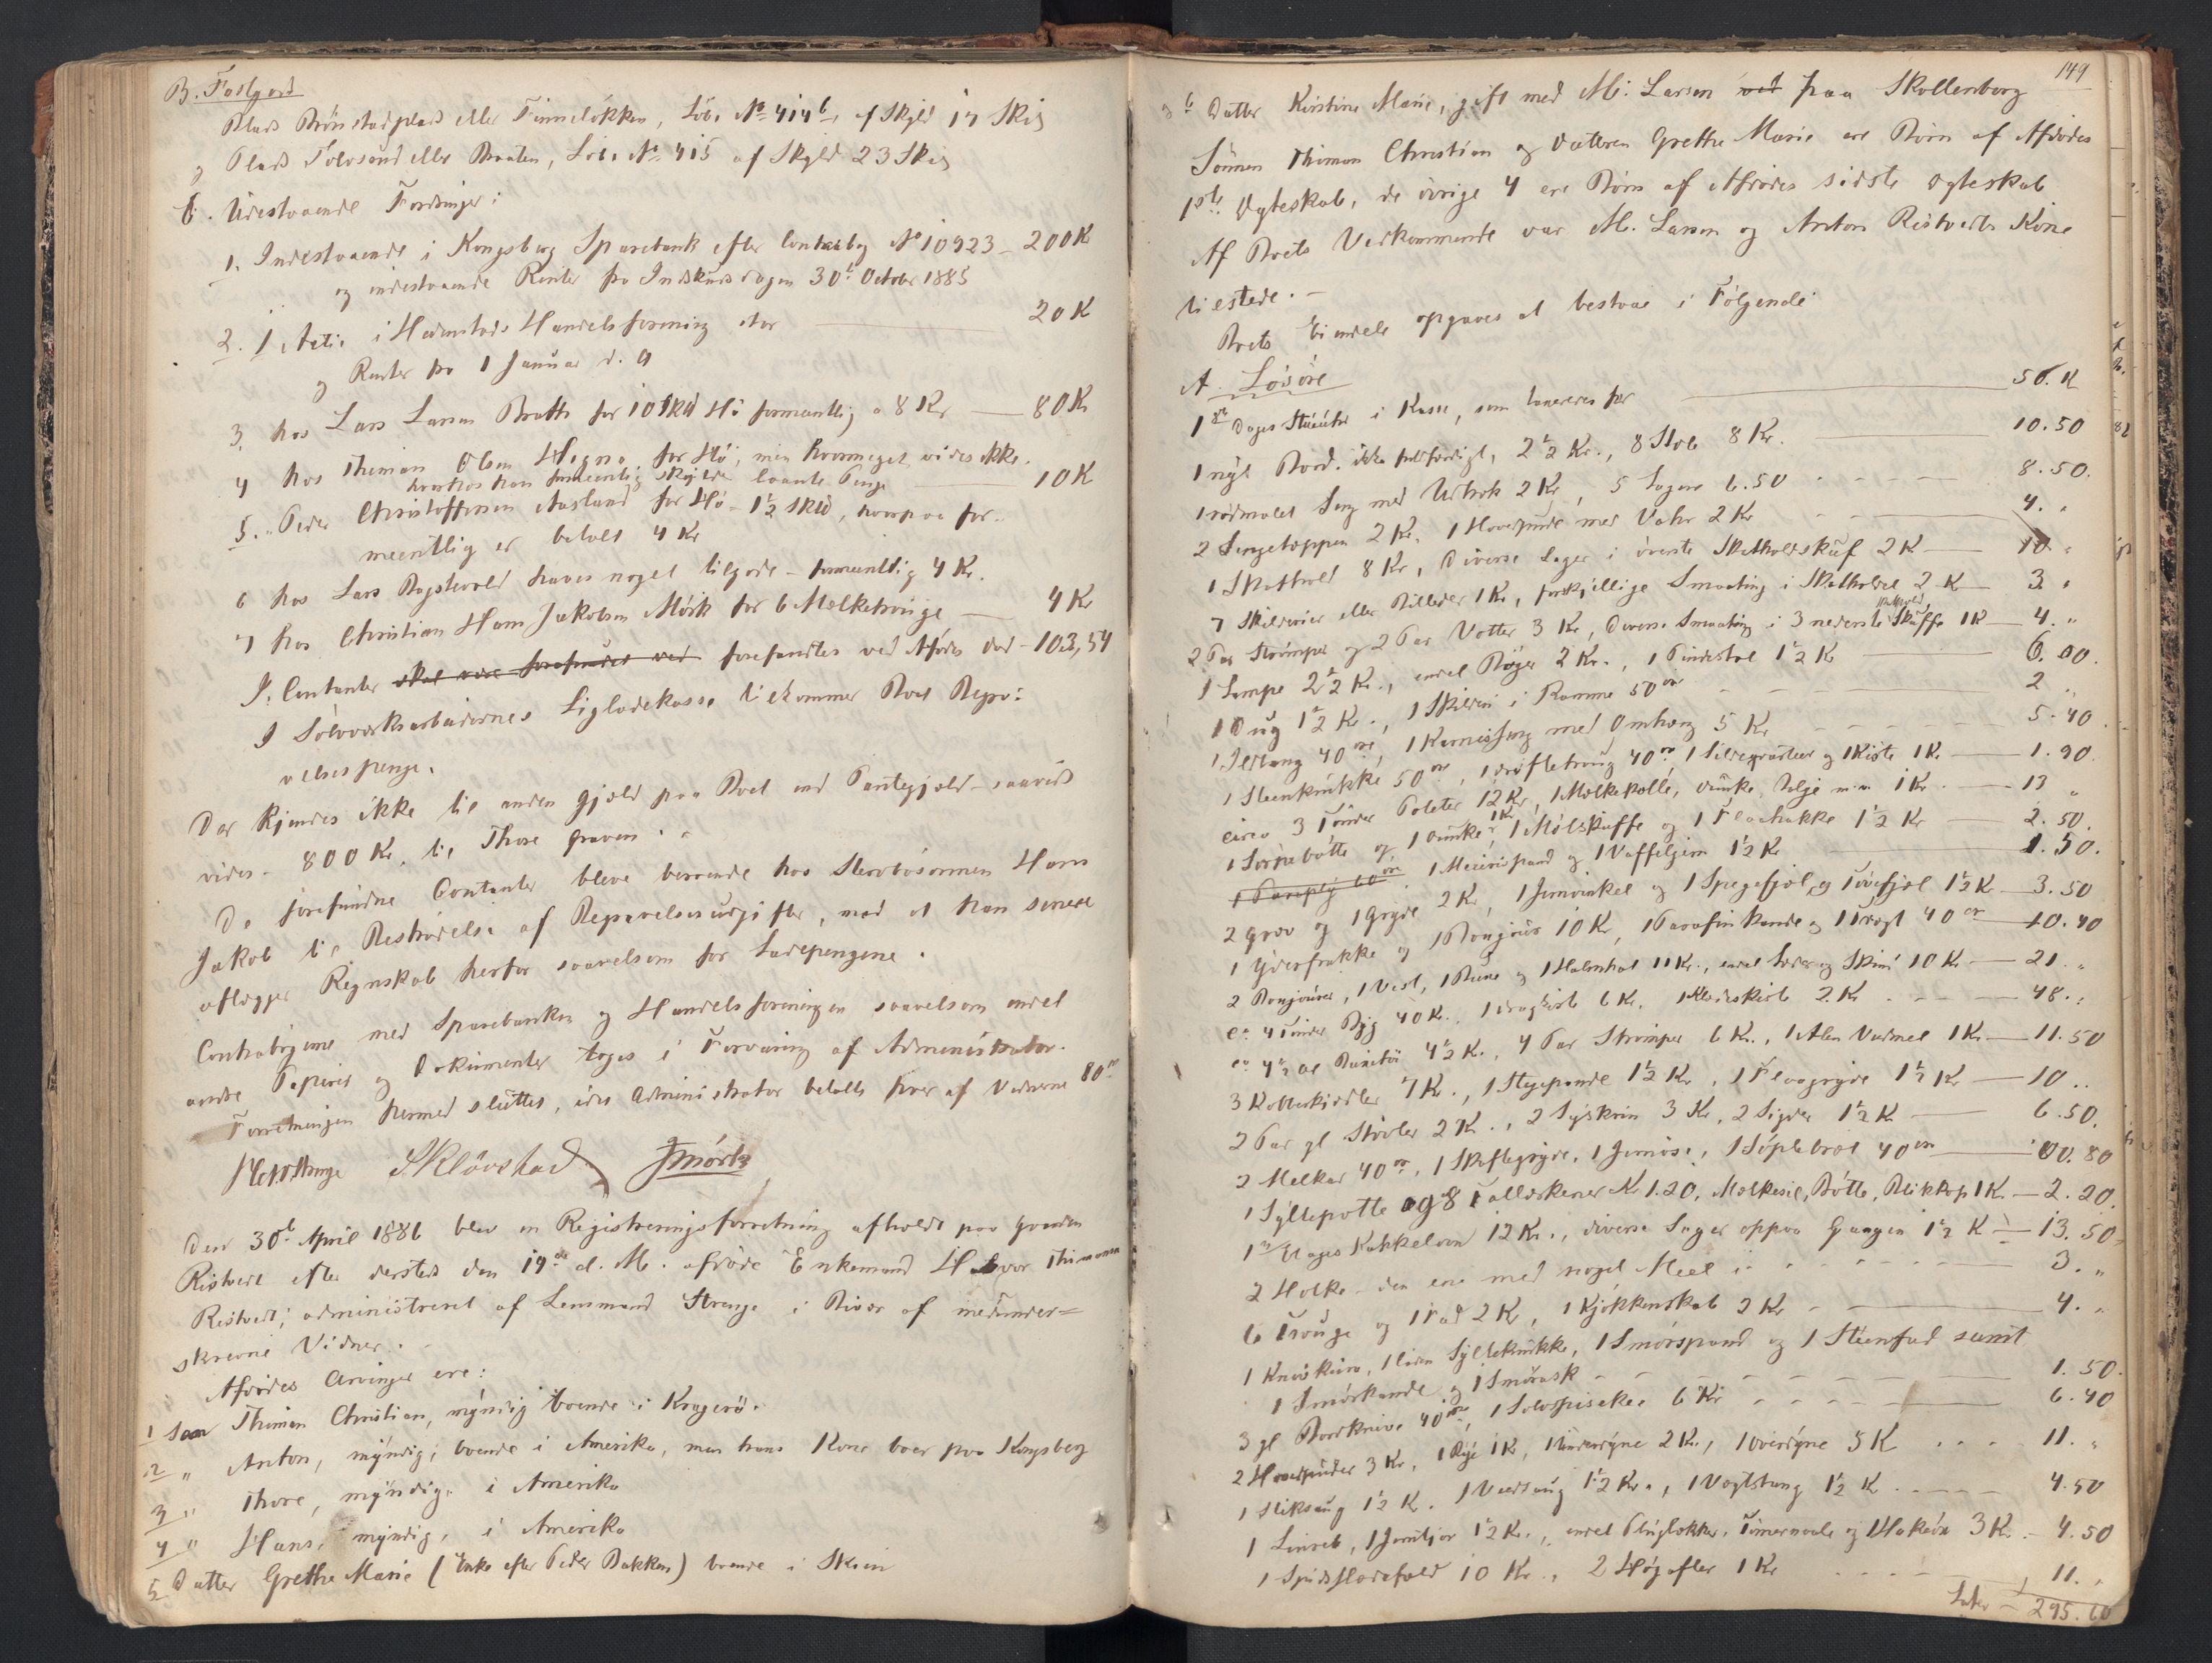 B. Fastgods
Plads Brønstadplads eller Finneløkken, Løb. No 414b, af Skyld 17 Skil
og Plads Tolosrud eller Braaten, Løb. No 415 af Skyld 23 Skil
C. Udestaaende Fordringer:
1. Indestaaende i Kongsberg Sparebank efter Contrabog No 10923 - 200 K
og indestaaende Renter fra Indskudsdagen 30t October 1885
2. 1 Actie i Hedenstads Handelsforening stor 20 K
og Renter fra 1 Januar d. A
3. hos Lars Larsen Braatte for 10 Skd Hø formentlig a 8 Kr 80 K
4 hos Thiman Olsen Hegna for Hø, men hvormeget vides ikke.
hvorhos han formentlig skylder laante Penge 10 K
5. " Peder Christoffersen Aasland for Hø - 1½ Skd, hvorpaa for-
meentlig er betalt 4 Kr
6 hos Lars Bagstevold haves noget tilgode - formeentlig 4 Kr.
7 hos Christian Ham Jakobsen Mørk for 6 Mølketringe 4 Kr
I. Contanter skal være forefundet ved forefandtes ved Afdødes Død - 103,54
I Sølvverksarbeidernes Ligladekasse tilkommer Boet Begra-
velsespenge.
Der kjendes ikke til anden Gjæld paa Boet end Pantegjæld - saavidt
vides - 800 Kr. til Thore Graven.
De forefundne Contanter bleve beroende hos Stervbosønnen Hans
Jakob til Bestridelse af Begravelsesudgifter, mod at han senere
aflægger Regnskab herfor saavelsom for Ladepengene.
Contrabøgerne med Sparebanken og Handelsforeningen saavelsom endel
andre Papirer og Dokumenter toges i Forvaring af Administrator.
Forretningen hermed sluttet, idet Administrator betalte hver af Vidnerne 80 ør
Strenge Skløvstad JMørk
Den 30te April 1886 blev en Registreringsforretning afholdt paa Gaarden
Ristvedt efter dersteds den 19de d. M. afdøde Enkemand Halvor Thimansen
Ristvedt; administreret af Lensmand Strenge i Bivær af medunder-
skrevne Vidner.
Afdødes Arvinger ere:
1 Søn Thiman Christian, myndig boende i Kragerø.
2 " Anton, myndig, boende i Amerika, men hans Kone boer paa Kongsberg
3 " Thore, myndig, i Amerika
4 " Hans, myndig, i Amerika
5 Datter Grethe Marie (Enke efter Peder Bakken) boende i Skien
149
6 Datter Kirstine Marie, gift med M. Larsen ved paa Skollenborg
Sønnen Thiman Christian og Datteren Grethe Marie ere Børn af Afdødes
1ste Ægteskab, de øvrige 4 ere Børn af Afdødes sidste Ægteskab
Af Boets Vedkommende var M. Larsen og Anton Ristvedts Kone
tilstede. -
Boets Eiendele opgaves at bestaae i Følgende
A. Løsøre
1 8te Dages Stueuhr i Kasse, som taxeres for 50. K
1 nyt Bord, ikke fuldfærdigt, 2½ Kr., 8 Stole 8 Kr. 10.50
1 rødmalet Seng med Udtræk 2 Kr, 5 Lagener 6.50 8.50.
2 Sengetæpper 2 Kr. 1 Hovedpude med Vahr 2 Kr 4. "
1 Skathold 8 Kr, Diverse Sager i øverste Skatholdskuf 2 K 10. "
7 Skilderier eller Billeder 1 Kr, forskjellige Smaating i Skatholdet 2 K 3. "
2 Par Strømper og 2 Par Votter 3 Kr, Diverse Smaating i 3 nederste Skathold Skuffe 1 K 4. "
1 Lampe 2½ Kr., endel Bøger 2 Kr., 1 Pindestol 1½ K 6.00.
1 Dug 1½ Kr., 1 Skilderi i Ramme 50 ør 2 "
1 Ildtang 40 øre, 1 Karnisseng med Omhæng 5 Kr 5.40
1 Steenkrukke 50 ør, 1 Drøftetroug 40 ør 1 og 1 Kiste 1 K. 1.90.
circa 3 Tønder Poteter 12 Kr, 1 Mølkekolle, Dunke, Balje m.m. 1 Kr. 13 "
1 Sørpebøtte og 1 Dunke 1 K, 1 Møgskuffe og 1 Flaahakke 1½ Kr 2.50.
1 Paraply 60 ør. 1 Meieripand og 1 Vaffeljern 1½ K 1.50.
2 Grev og 1 Gryde 2 K, 1 Jernvinkel og 1 Spegefjøl, og Tøvefjøl 1½ K 3.50
1 Yderfrakke og 1 Bonjour 10 K, 1 Parafinkande og 1 Tragt 40 ør 10.40
2 Bonjourer, 1 Vest, 1 Buxe og 1 Halmhat 11 K., endel Læder og Skind 10 K 21. "
ca 4 Tønder Byg 40 K., 1 Dragkiste 6 K. 1 Klædeskist 2 K 48. "
ca 4½ Al Buxetøi 4½ K., 4 Par Strømper 6 K., 1 Alen Vadmel 1 K. 11.50
3 Kobberkjedler 7 K., 1 Stegepande 1½ K, 1 Flaagryde 1½ K 10..
2 Par gl Støvler 2 K., 2 Syskrin 3 K, 2 Sigder 1½ K 6.50.
2 Melkar 40 ør, 1 Skaftegryde, 1 Jernøse, 1 Søplebræt 40 ør 00.80
1 Syltepotte og 8 Tallerkener K 1.20, Mælkesil, Bøtte, Blikkop 1 K. 2.20.
1 2 Etages Kakkelovn 12 K., diverse Sager oppaa Gangen 1½ K 13.50
2 Holke - den ene med noget Meel i 3. "
6 Trouge og 1 Fad 2 K, 1 Kjøkkenskab 2 Kr 4. "
1 Knivkurv, 1 liden Syltekrukke, 1 Smørspand og 1 Steenfad samt
1 Smørkande og 1 Smørask 1.50.
3 gl Bordknive 40 øre, 1 Sølvspiseske 6 Kr 6.40
2 Hovedpuder 3 Kr, 1 Rye 1 K, 1 Underdyne 2 K., 1 Overdyne 5 K 11. "
1 Stiksaug 1½ K. 1 Vedsaug 1½ K., 1 Vogtstang 1½ K 4.50
1 Linreb, 1 Jernljor 1½ K., endel Ploglækker, Tømernavle og 3 K. 4.50
1 10 Kr., 2 Høgafler 1 Kr 11. "
Later 295.60